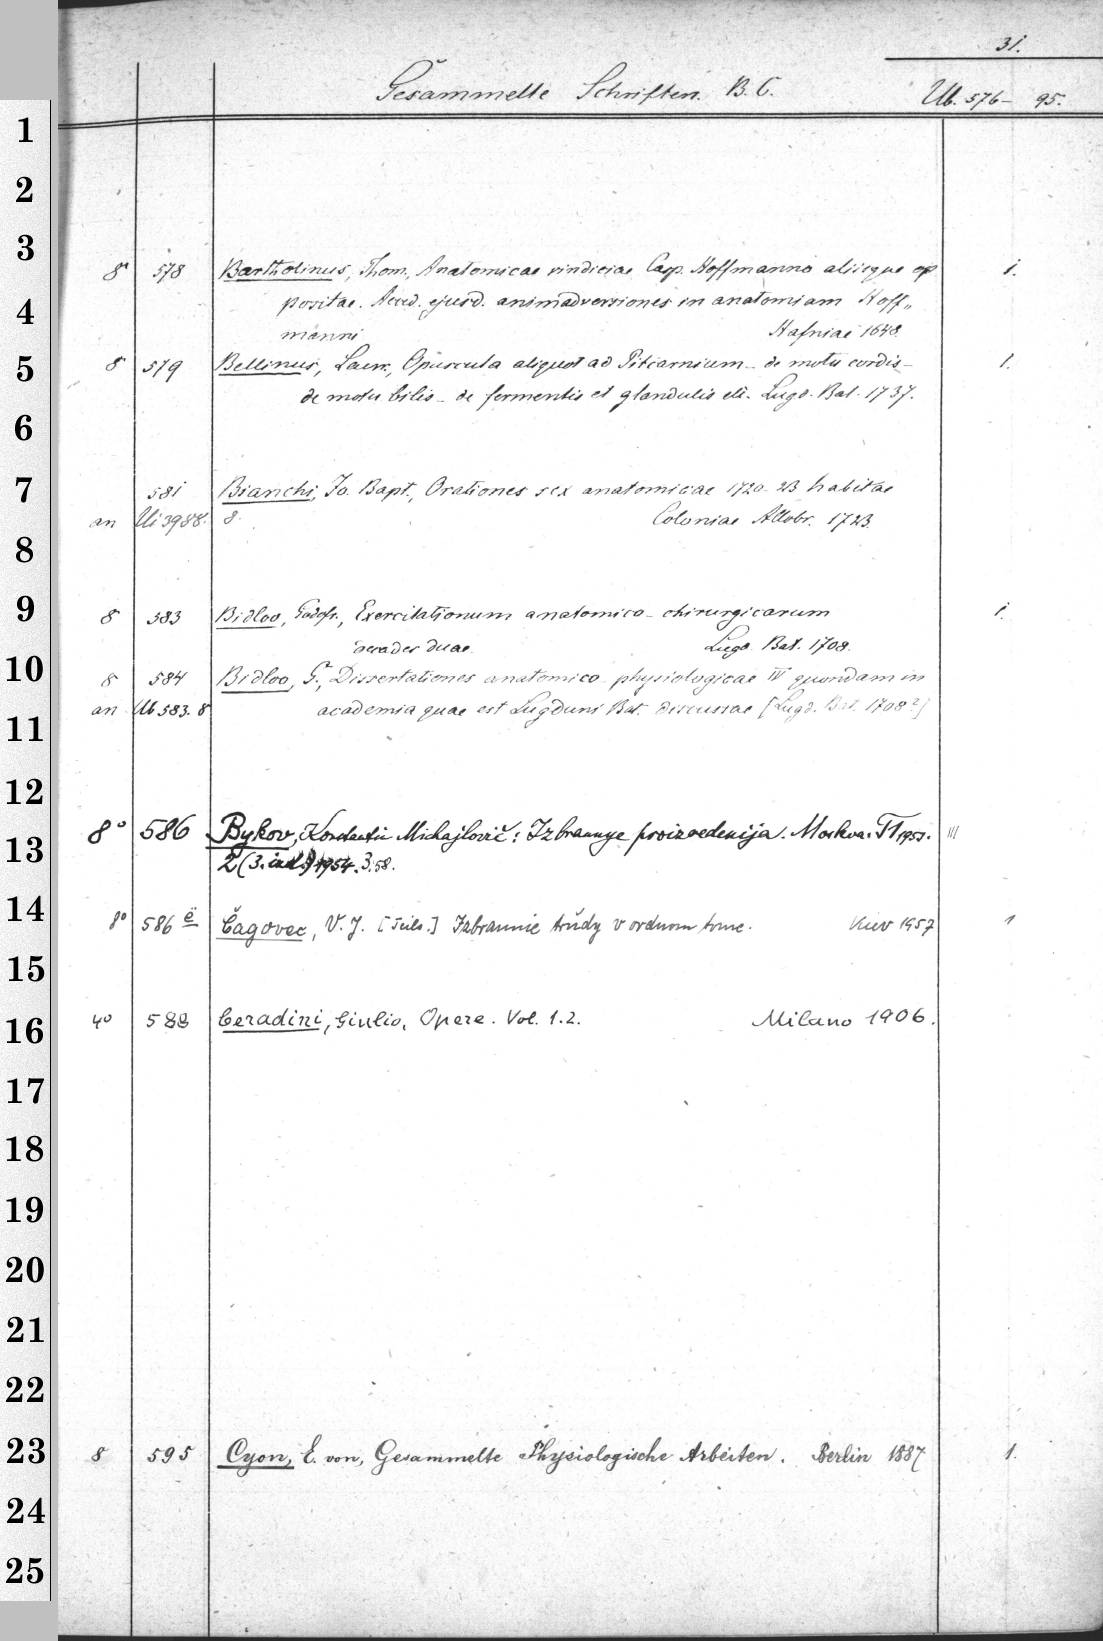 31.
Gesammelte Schriften. B. C. Ub. 576- 95.
1
2
3
8° 578 Bartholinus, Thom., Anatomicae vindiciae Casp. Hoffmanno aliisque op 1.
4 positae. Acced. ejusd. animadversiones in anatomiam Hoff„
manni Hafniae 1648.
5 8 579 Bellinus, Laur., Opuscula aliquot ad Pitcarnium - de motu cordis - 1.
de motu bilis - de fermentis et glandulis etc. Lugd. Bat. 1737.
6
7 581 Bianchi, Jo. Bapt., Orationes sex anatomicae 1720-23 habitae
an Ui 3988. 8. Coloniae Allobr. 1723
8
9 8 583 Bidloo, Godofr., Exercitationum anatomico-chirurgicarum 1.
decades duae. Lugd. Bat. 1708.
10 8 584 Bidloo, G., Dissertationes anatomico physiologicae IV quondam in
an Ub 583. 8 academia quae est Lugduni Bat. discussae [Lugd. Bat. 1708?]
11
12
8° 586 Bykov, Konstantin Michajlovič: Izbrannye proizvedenija. Moskva. T1 1953. III
13 2 1954. 3.58.
14 8° 586 ë Čagovec, V. J. Izbrannie trŭdy v odnom tome. Kiev 1957 1
15
16 4° 588 Ceradini, Giulio, Opere. Vol. 1.2. Milano 1906.
17
18
19
20
21
22
23 8 595 Cyon, E. von, Gesammelte Physiologische Arbeiten. Berlin 1887 1.
24
25